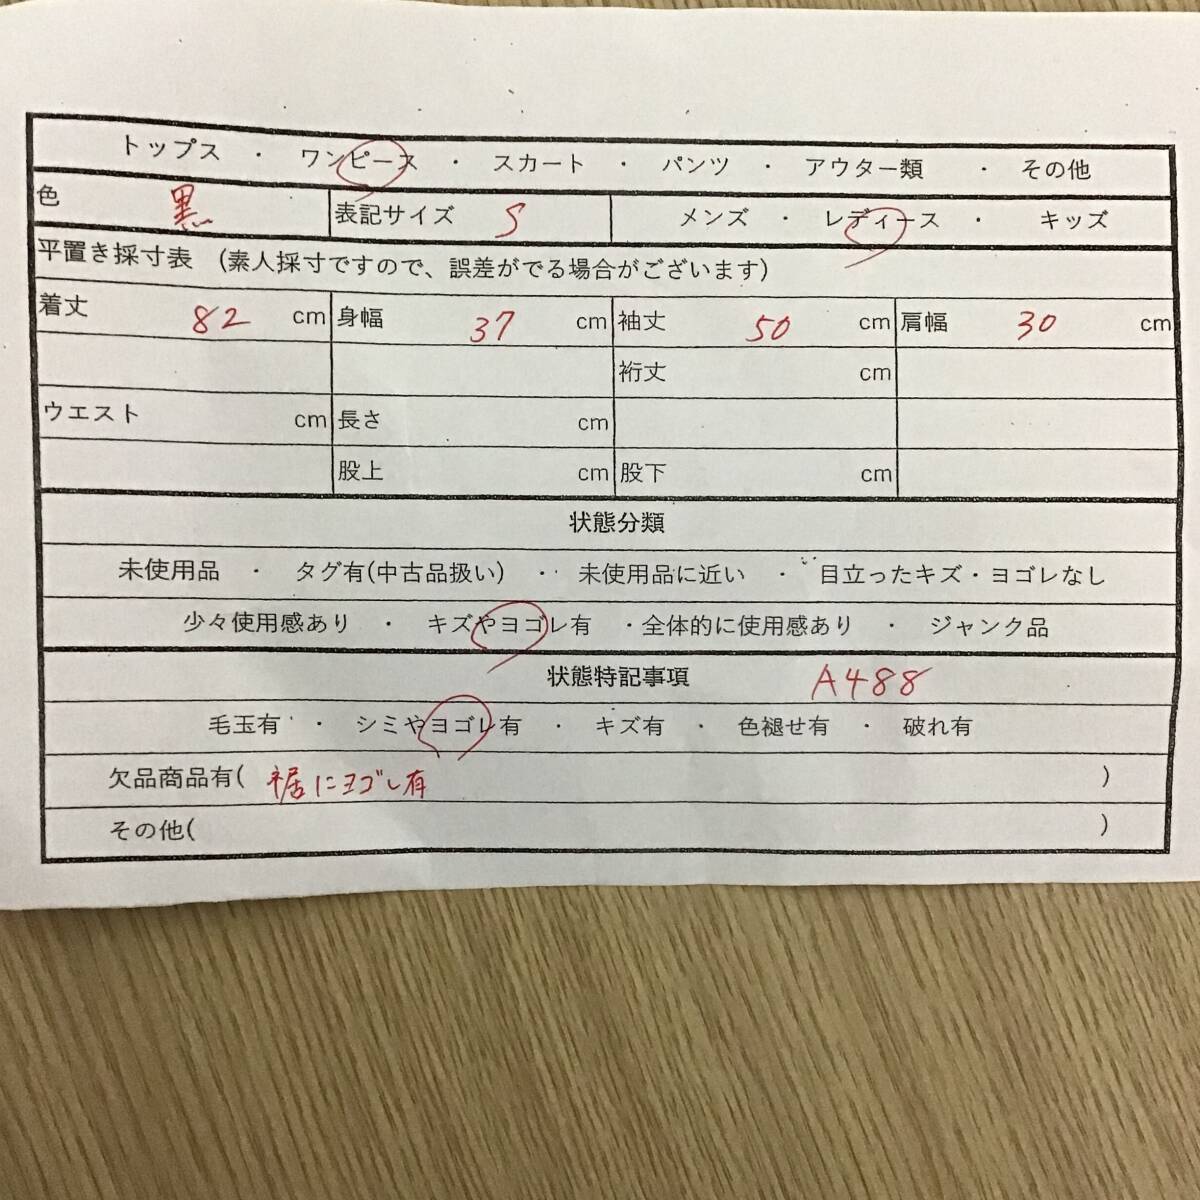 トップス ・ ワンピース ・ スカート ・ パンツ ・ アウター類 ・ その他
色 黒 表記サイズ S メンズ ・ レディース ・ キッズ
平置き採寸表 (素人採寸ですので、誤差がでる場合がございます)
着丈 82 cm 身幅 37 cm 袖丈 50 cm 肩幅 30 cm
裄丈 cm
ウエスト cm 長さ cm
股上 cm 股下 cm
状態分類
未使用品 ・ タグ有(中古品扱い) ・ 未使用品に近い ・ 目立ったキズ・ヨゴレなし
少々使用感あり ・ キズやヨゴレ有 ・全体的に使用感あり ・ ジャンク品
状態特記事項 A488
毛玉有 ・ シミやヨゴレ有 ・ キズ有 ・ 色褪せ有 ・ 破れ有
欠品商品有( 裾にヨゴレ有 )
その他( )